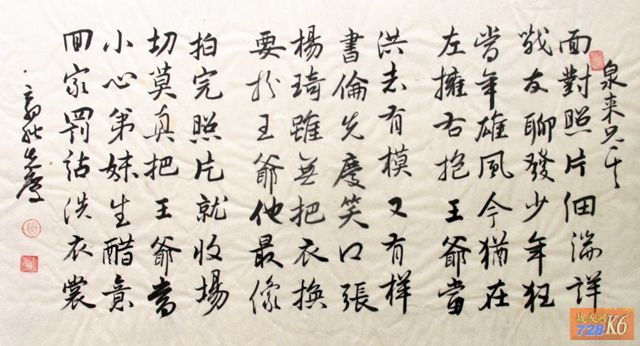 泉来兄正
面對照片細端詳
戰友聊發少年狂
當年雄風今猶在
左擁右抱王爺當
洪志有模又有樣
書倫先慶笑口張
楊琦雖無把衣換
要於王爺他最像
拍完照片就收場
切莫真把王爺當
小心弟妹生醋意
回家罰站洗衣裳
先慶
战友网
728K6